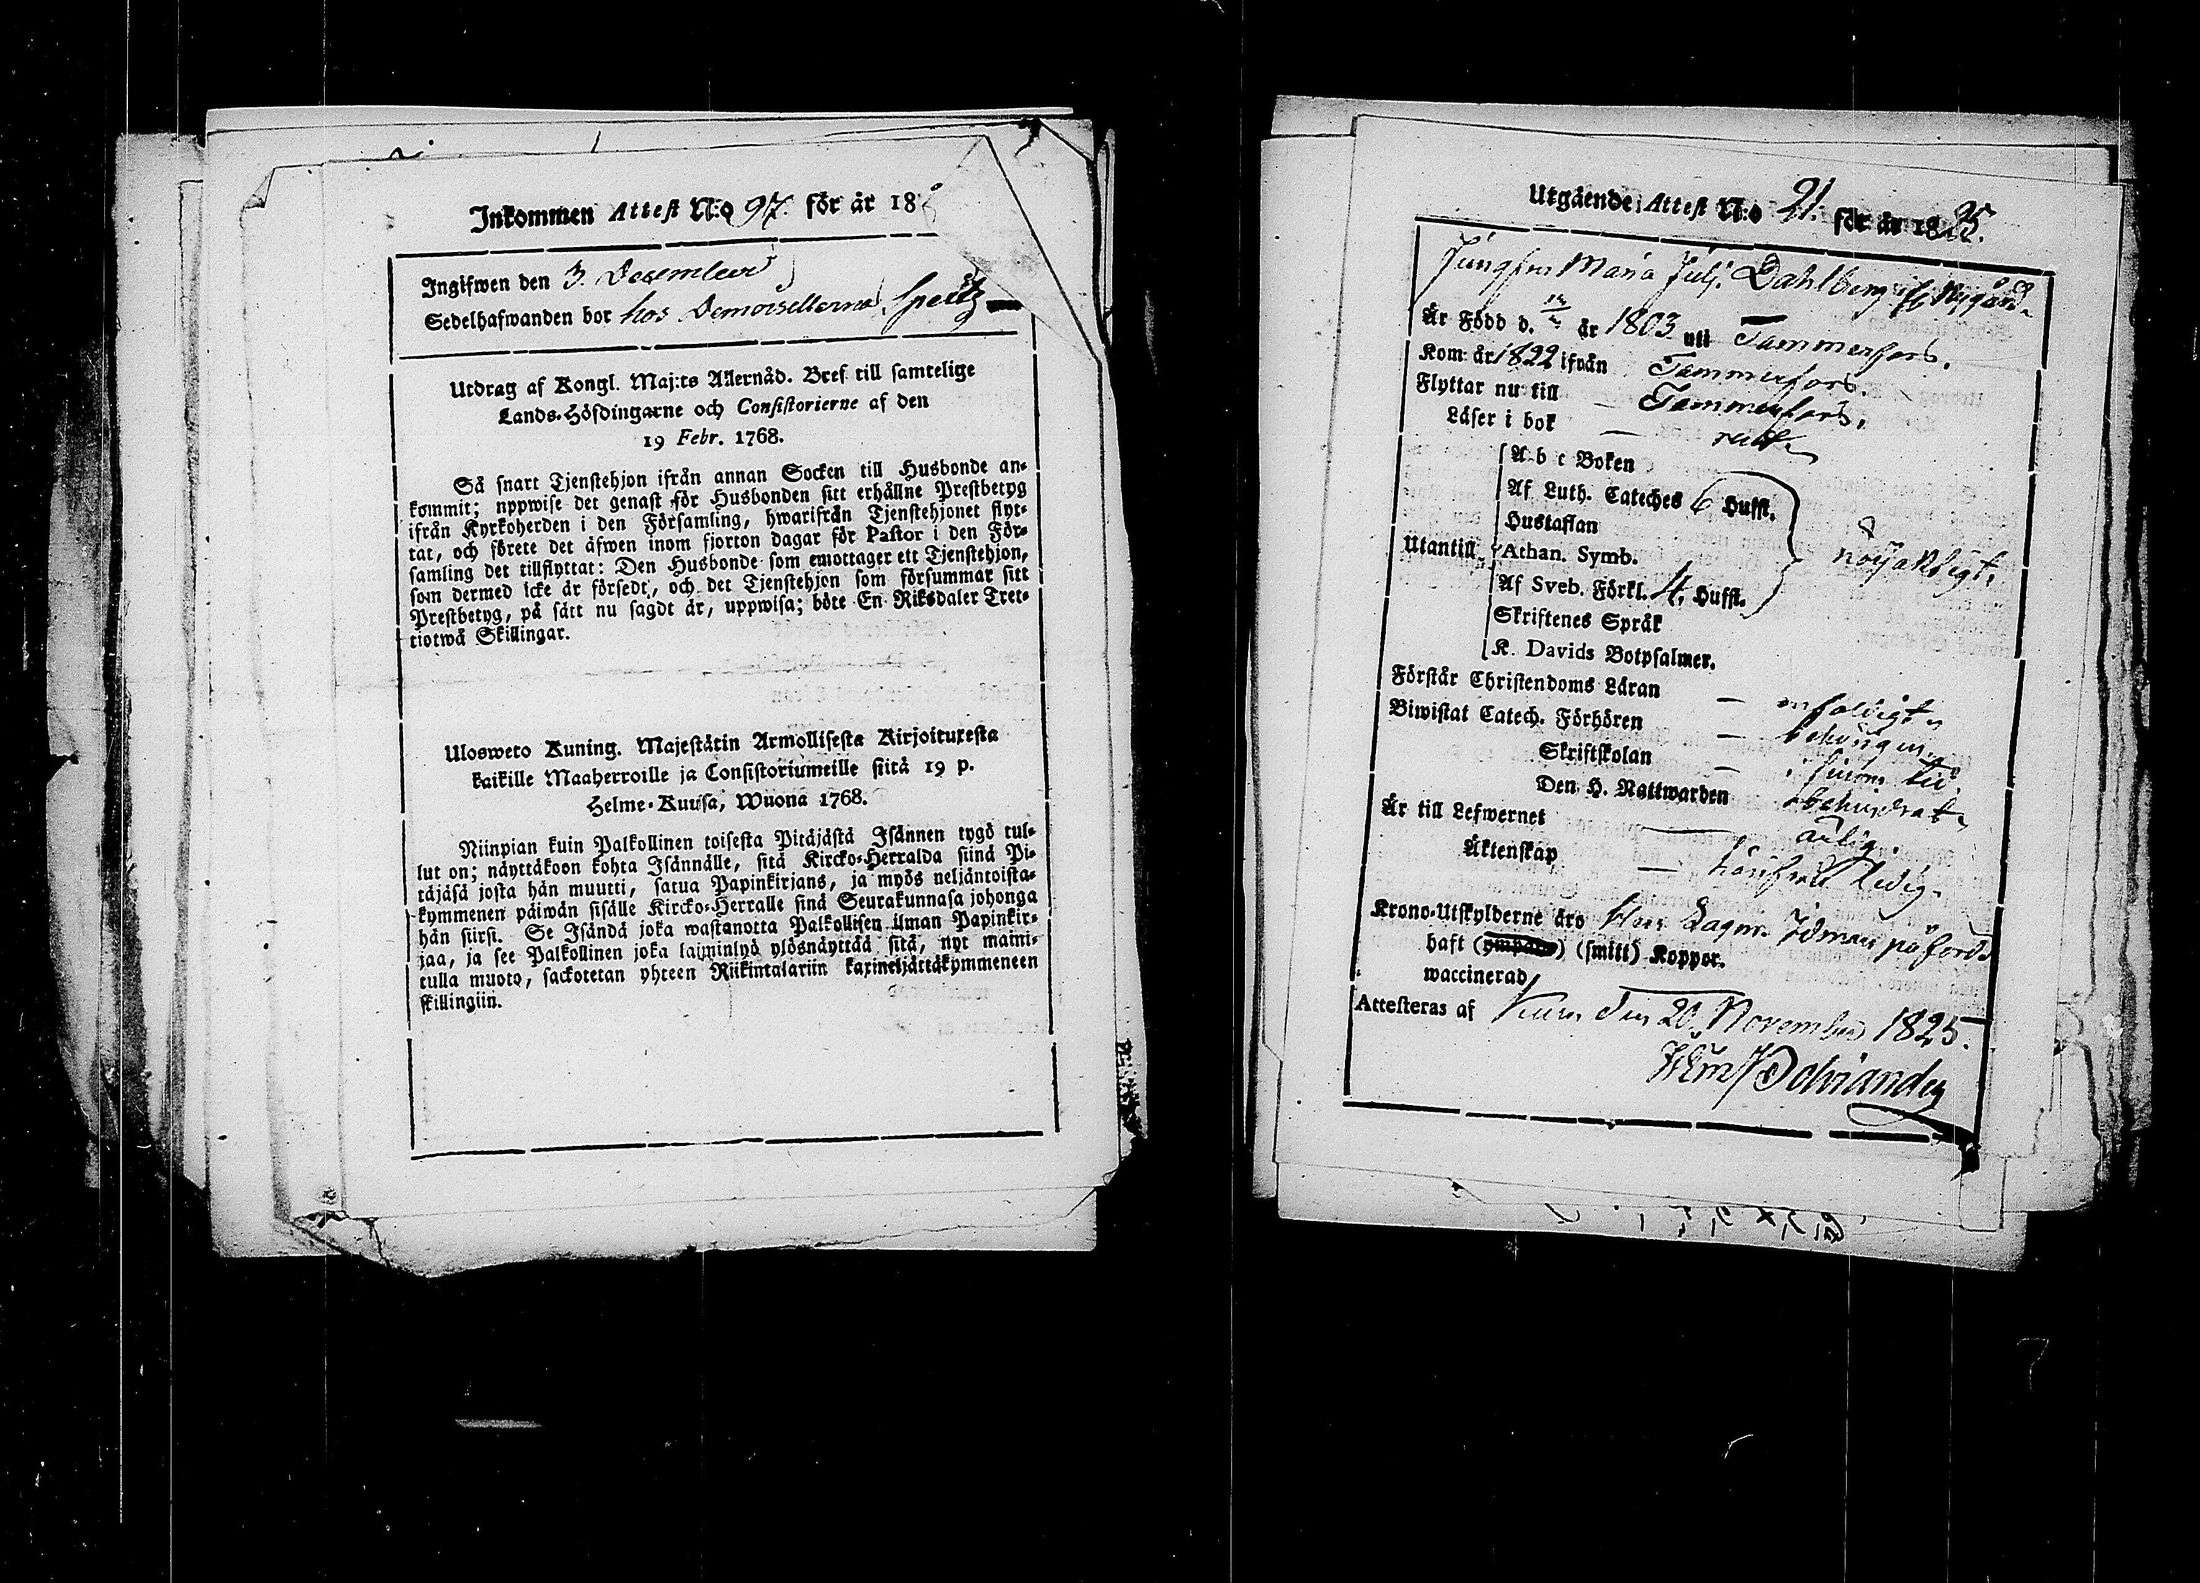 Inkommen Attest N:o 97. för år 18
Ingifwen den 3. December
Sedelhafwanden bor hos Demoisellerna Speitz
Utdrag af Kongl. Maj:ts Allernåd. Bref till samtelige
Lands-Höfdingarne och Consistorierne af den
19 Febr. 1768.
Så snart Tjenstehjon ifrån annan Socken till Husbonde an-
kommit; uppwise det genast för Husbonden sitt erhållne Prestbetyg
ifrån Kyrkoherden i den Församling, hwarifrån Tjenstehjonet flyt-
tat, och förete det äfwen inom fjorton dagar för Pastor i den För-
samling det tillflyttat: Den Husbonde som emottager ett Tjenstehjon,
som dermed icke är försedt, och det Tjenstehjon som försummar sitt
Prestbetyg, på sätt nu sagdt är, uppwisa; böte En Riksdaler Tret-
tiotwå Skillingar.
Ulosweto Kuning. Majestätin Armollisesta Kirjoituxesta
kaikille Maaherroille ja Consistoriumeille siitä 19 p.
Helme-Kuusa, Wuona 1768.
Niinpian kuin Palkollinen toisesta Pitäjästä Isännen tygö tul-
lut on; näyttäkoon kohta Isännälle, sitä Kircko-Herralda siinä Pi-
täjäsä josta hän muutti, saatua Papinkirjans, ja myös neljäntoista-
kymmenen päiwän sisälle Kircko-Herralle sinä Seurakunnasa johonga
hän siirsi. Se Isändä joka wastanotta Palkollisen ilman Papinkir-
jaa, ja see Palkollinen joka laiminlyö ylösnäyttää sitä, nyt maini-
tulla muoto, sackotetan yhteen Riikintalariin kaxineljättäkymmeneen
skillingiin.
Utgående Attest N:o 21. för år 1825.
Jungfru Maria Julj. Dahlberg if. Nygård
Är Född d. år 1803 uti Tammerfors.
Kom år 1822 ifrån Tammerfors.
Flyttar nu till — Tammerfors.
Läser i bok —
A b c Boken
Af Luth. Cateches 6 Hufst.
Hustaflan
Utantill Athan. Symb. nöjaktigt.
Af Sveb. Förkl. 4. Hufst.
Skriftenes Språk
K. Davids Botpsalmer.
Förstår Christendoms Läran — enfaldigt
Biwistat Catech. Förhören — behörigen
Skriftskolan — i sinom tid
Den H. Nattwarden obehindrat
Är till Lefwernet — ärlig.
Äktenskap — hörifrån ledig.
Krono-Utskylderne äro Herr Lagm. Idman på Fors
haft (ympade) (smitt) Koppor.
waccinerad
Attesteras af Kuru den 20 November 1825.